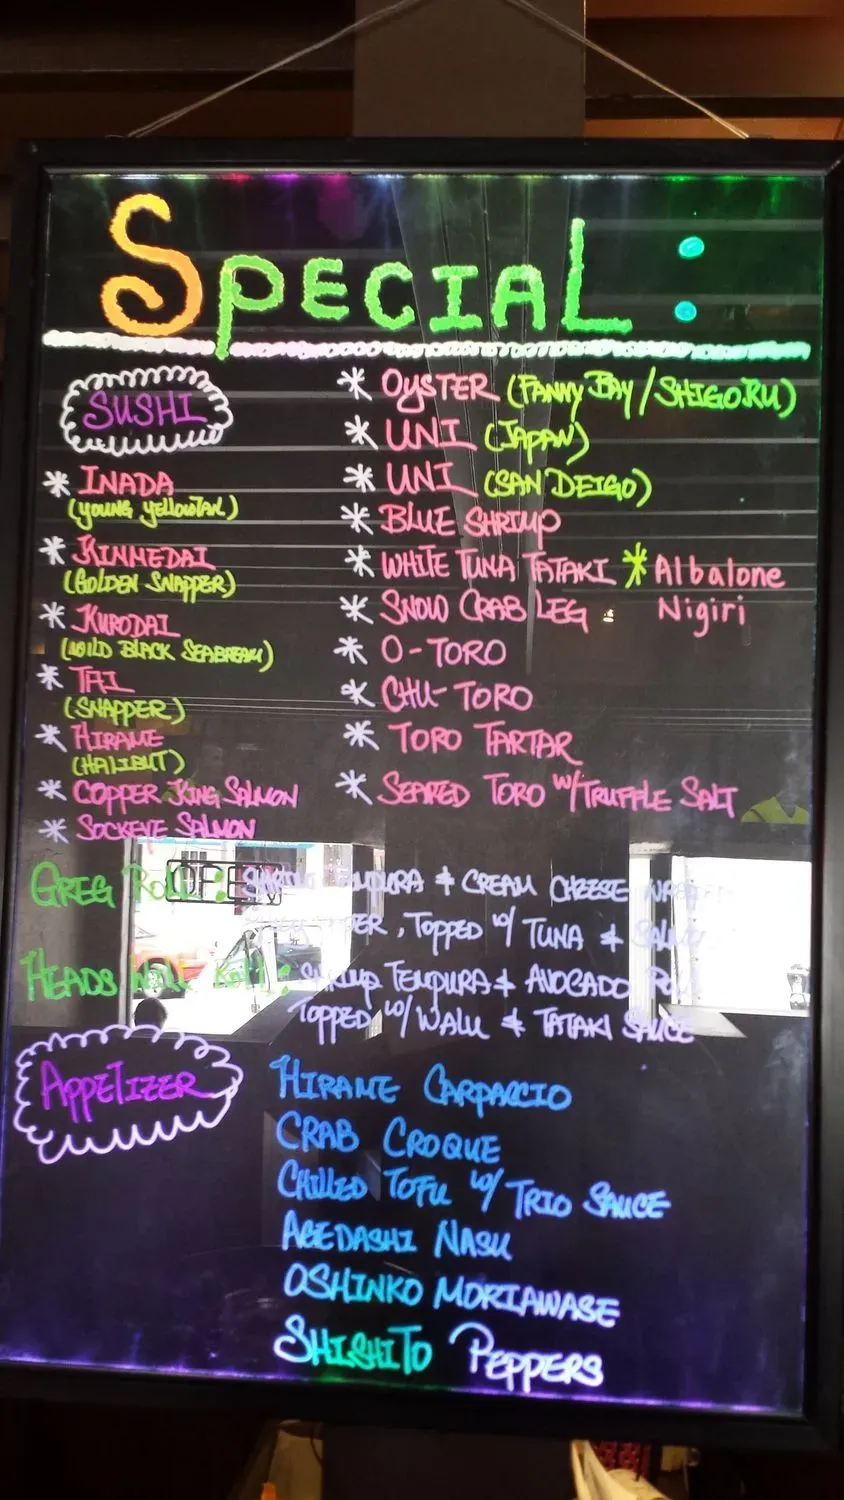 SPECIAL :
SUSHI
* INADA
(YOUNG YELLOWTAIL)
* KINMEDAI
(GOLDEN SNAPPER)
* KURODAI
(WILD BLACK SEABREAM)
* TAI
(SNAPPER)
* HIRAME
(HALIBUT)
* COPPER KING SALMON
* SOCKEYE SALMON
* OYSTER (FANNY BAY / SHIGORU)
* UNI (JAPAN)
* UNI (SAN DEIGO)
* BLUE SHRIMP
* WHITE TUNA TATAKI
* SNOW CRAB LEG
* O-TORO
* CHU-TORO
* TORO TARTAR
* SEARED TORO W/TRUFFLE SALT
* Albalone
Nigiri
GREG ROLL : SHRIMP TEMPURA & CREAM CHEESE
, TOPPED W/ TUNA &
HEADS ROLL : SHRIMP TEMPURA & AVOCADO
TOPPED W/ WALU & TATAKI SAUCE
APPETIZER
HIRAME CARPACCIO
CRAB CROQUE
CHILLED TOFU W/ TRIO SAUCE
AGEDASHI NASU
OSHINKO MORIAWASE
SHISHITO PEPPERS
OPEN